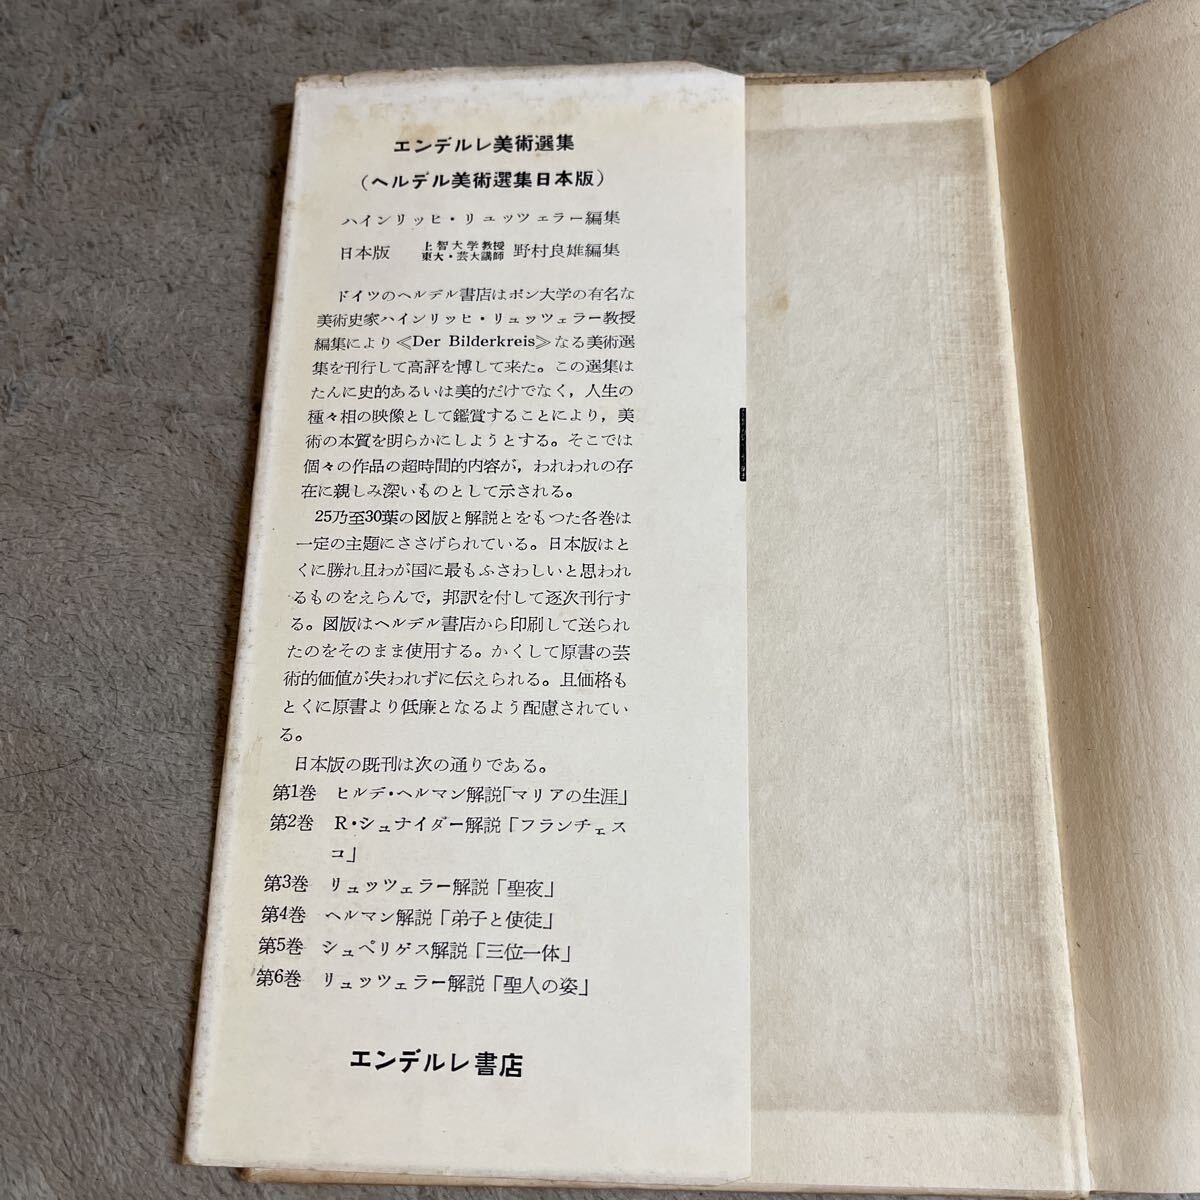 エンデルレ美術選集
(ヘルデル美術選集日本版)
ハインリッヒ・リュッツェラー編集
日本版 上智大学教授 東大・芸大講師 野村良雄編集
ドイツのヘルデル書店はボン大学の有名な
美術史家ハインリッヒ・リュッツェラー教授
編集により≪Der Bilderkreis≫なる美術選
集を刊行して高評を博して来た。この選集は
たんに史的あるいは美的だけでなく，人生の
種々相の映像として鑑賞することにより，美
術の本質を明らかにしようとする。そこでは
個々の作品の超時間的内容が，われわれの存
在に親しみ深いものとして示される。
25乃至30葉の図版と解説とをもつた各巻は
一定の主題にささげられている。日本版はと
くに勝れ且わが国に最もふさわしいと思われ
るものをえらんで，邦訳を付して逐次刊行す
る。図版はヘルデル書店から印刷して送られ
たのをそのまま使用する。かくして原書の芸
術的価値が失われずに伝えられる。且価格も
とくに原書より低廉となるよう配慮されてい
る。
日本版の既刊は次の通りである。
第1巻 ヒルデ・ヘルマン解説「マリアの生涯」
第2巻 R・シュナイダー解説「フランチェス
コ」
第3巻 リュッツェラー解説「聖夜」
第4巻 ヘルマン解説「弟子と使徒」
第5巻 シュペリゲス解説「三位一体」
第6巻 リュッツェラー解説「聖人の姿」
エンデルレ書店